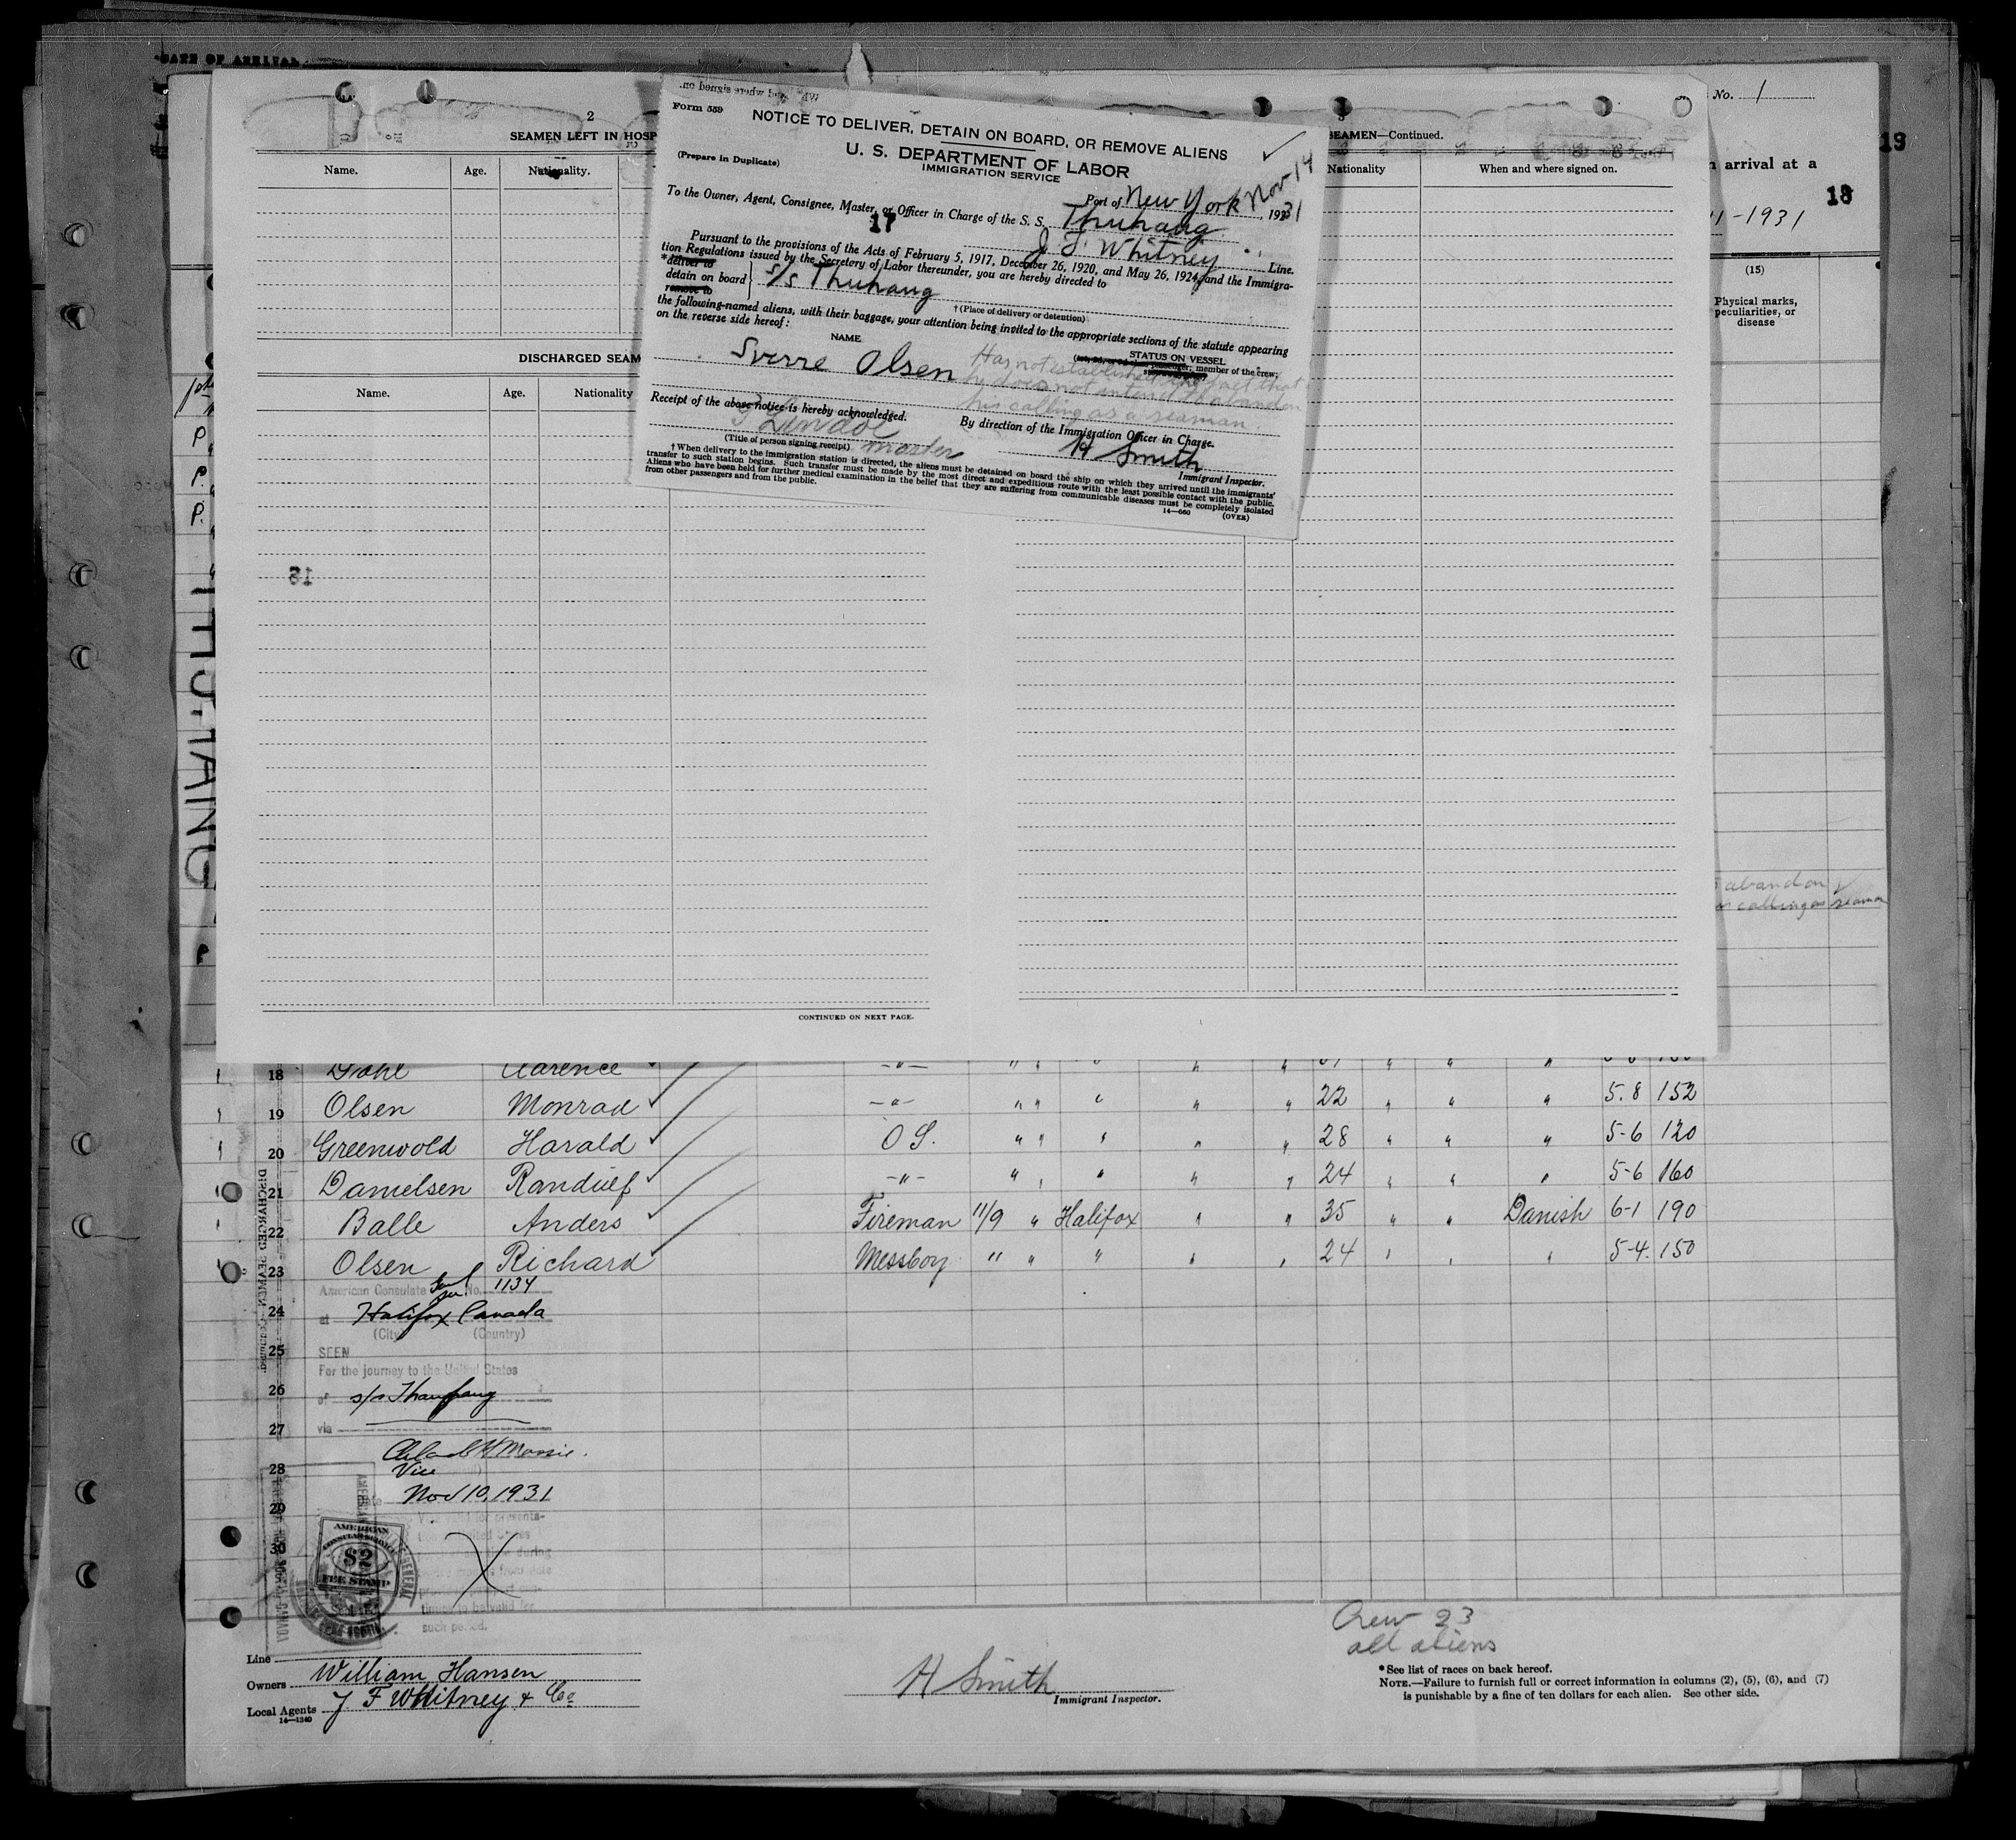 DATE OF ARRIVAL
No. 1
13
n arrival at a
13
-1931
(15)
Physical marks,
peculiarities, or
disease
2
SEAMEN LEFT IN HOSP
Name. Age. Nationality.
DISCHARGED SEAM
Name. Age. Nationality
SEAMEN—Continued.
Nationality When and where signed on.
Form 559
NOTICE TO DELIVER, DETAIN ON BOARD, OR REMOVE ALIENS
U. S. DEPARTMENT OF LABOR
IMMIGRATION SERVICE
(Prepare in Duplicate)
Port of New York Nov 14, 1931
To the Owner, Agent, Consignee, Master, or Officer in Charge of the S. S. Thuhaug
17
J. F. Whitney Line.
Pursuant to the provisions of the Acts of February 5, 1917, December 26, 1920, and May 26, 1924, and the Immigra-
tion Regulations issued by the Secretary of Labor thereunder, you are hereby directed to
*deliver to
detain on board } S/S Thuhaug
remove to
†(Place of delivery or detention)
the following-named aliens, with their baggage, your attention being invited to the appropriate sections of the statute appearing
on the reverse side hereof:
NAME STATUS ON VESSEL
member of the crew,
Sverre Olsen Has not established the fact that
he does not intend to abandon
his calling as a seaman.
Receipt of the above notice is hereby acknowledged.
By direction of the Immigration Officer in Charge.
(Title of person signing receipt) master
H Smith
Immigrant Inspector.
†When delivery to the immigration station is directed, the aliens must be detained on board the ship on which they arrived until the immigrants'
transfer to such station begins. Such transfer must be made by the most direct and expeditious route with the least possible contact with the public.
Aliens who have been held for further medical examination in the belief that they are suffering from communicable diseases must be completely isolated
from other passengers and from the public.
14—660 (OVER)
18
abandon
calling as seaman
CONTINUED ON NEXT PAGE.
18 Dahl Clarence -"-
19 Olsen Monrad -"- " " " " " 22 " " " 5.8 152
20 Greenwold Harald O S. " " " " " 28 " " " 5-6 120
21 Danielsen Randulf -"- " " " " " 24 " " " 5-6 160
22 Balle Anders Fireman 11/9 " Halifax " " 35 " " Danish 6-1 190
23 Olsen Richard Messboy " " " " " 24 " " " 5-4. 150
American Consulate No. 1134
24 at Halifax Canada
(City) (Country)
25 SEEN
For the journey to the United States
26 of s/s
27 via
28 Vice
29 Date Nov 10, 1931
30
AMERICAN
CONSULAR SERVICE
$2
FEE STAMP
such period.
DISCHARGED SEAMEN—Continued
Crew 23
all aliens
Line
Owners William Hansen
Local Agents J F Whitney & Co
14—1240
H Smith
Immigrant Inspector.
*See list of races on back hereof.
NOTE.—Failure to furnish full or correct information in columns (2), (5), (6), and (7)
is punishable by a fine of ten dollars for each alien. See other side.